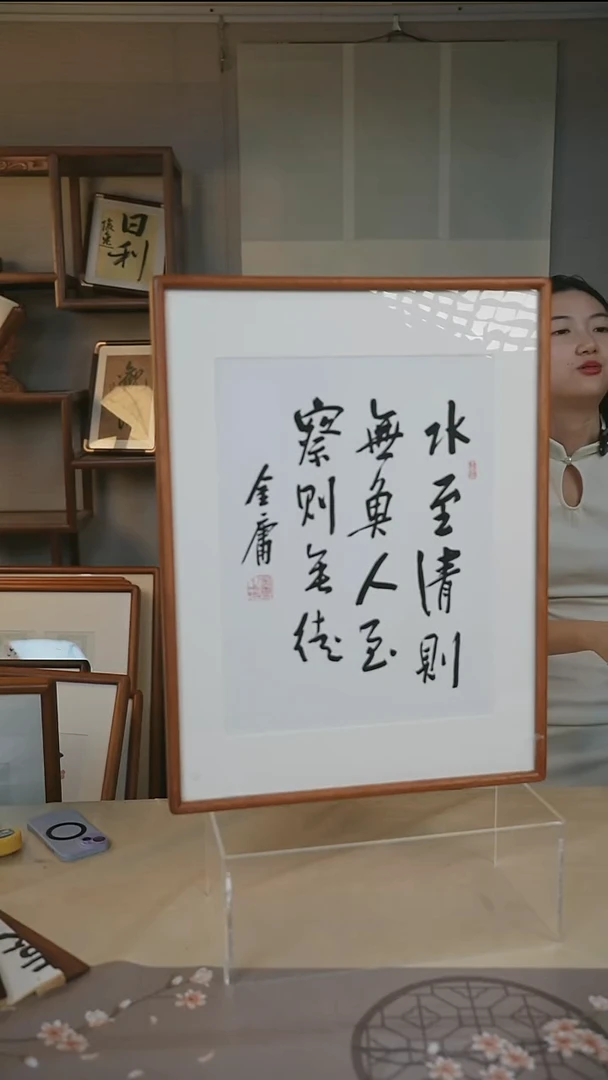 水至清則
無魚人至
察则无徒
金庸
日利